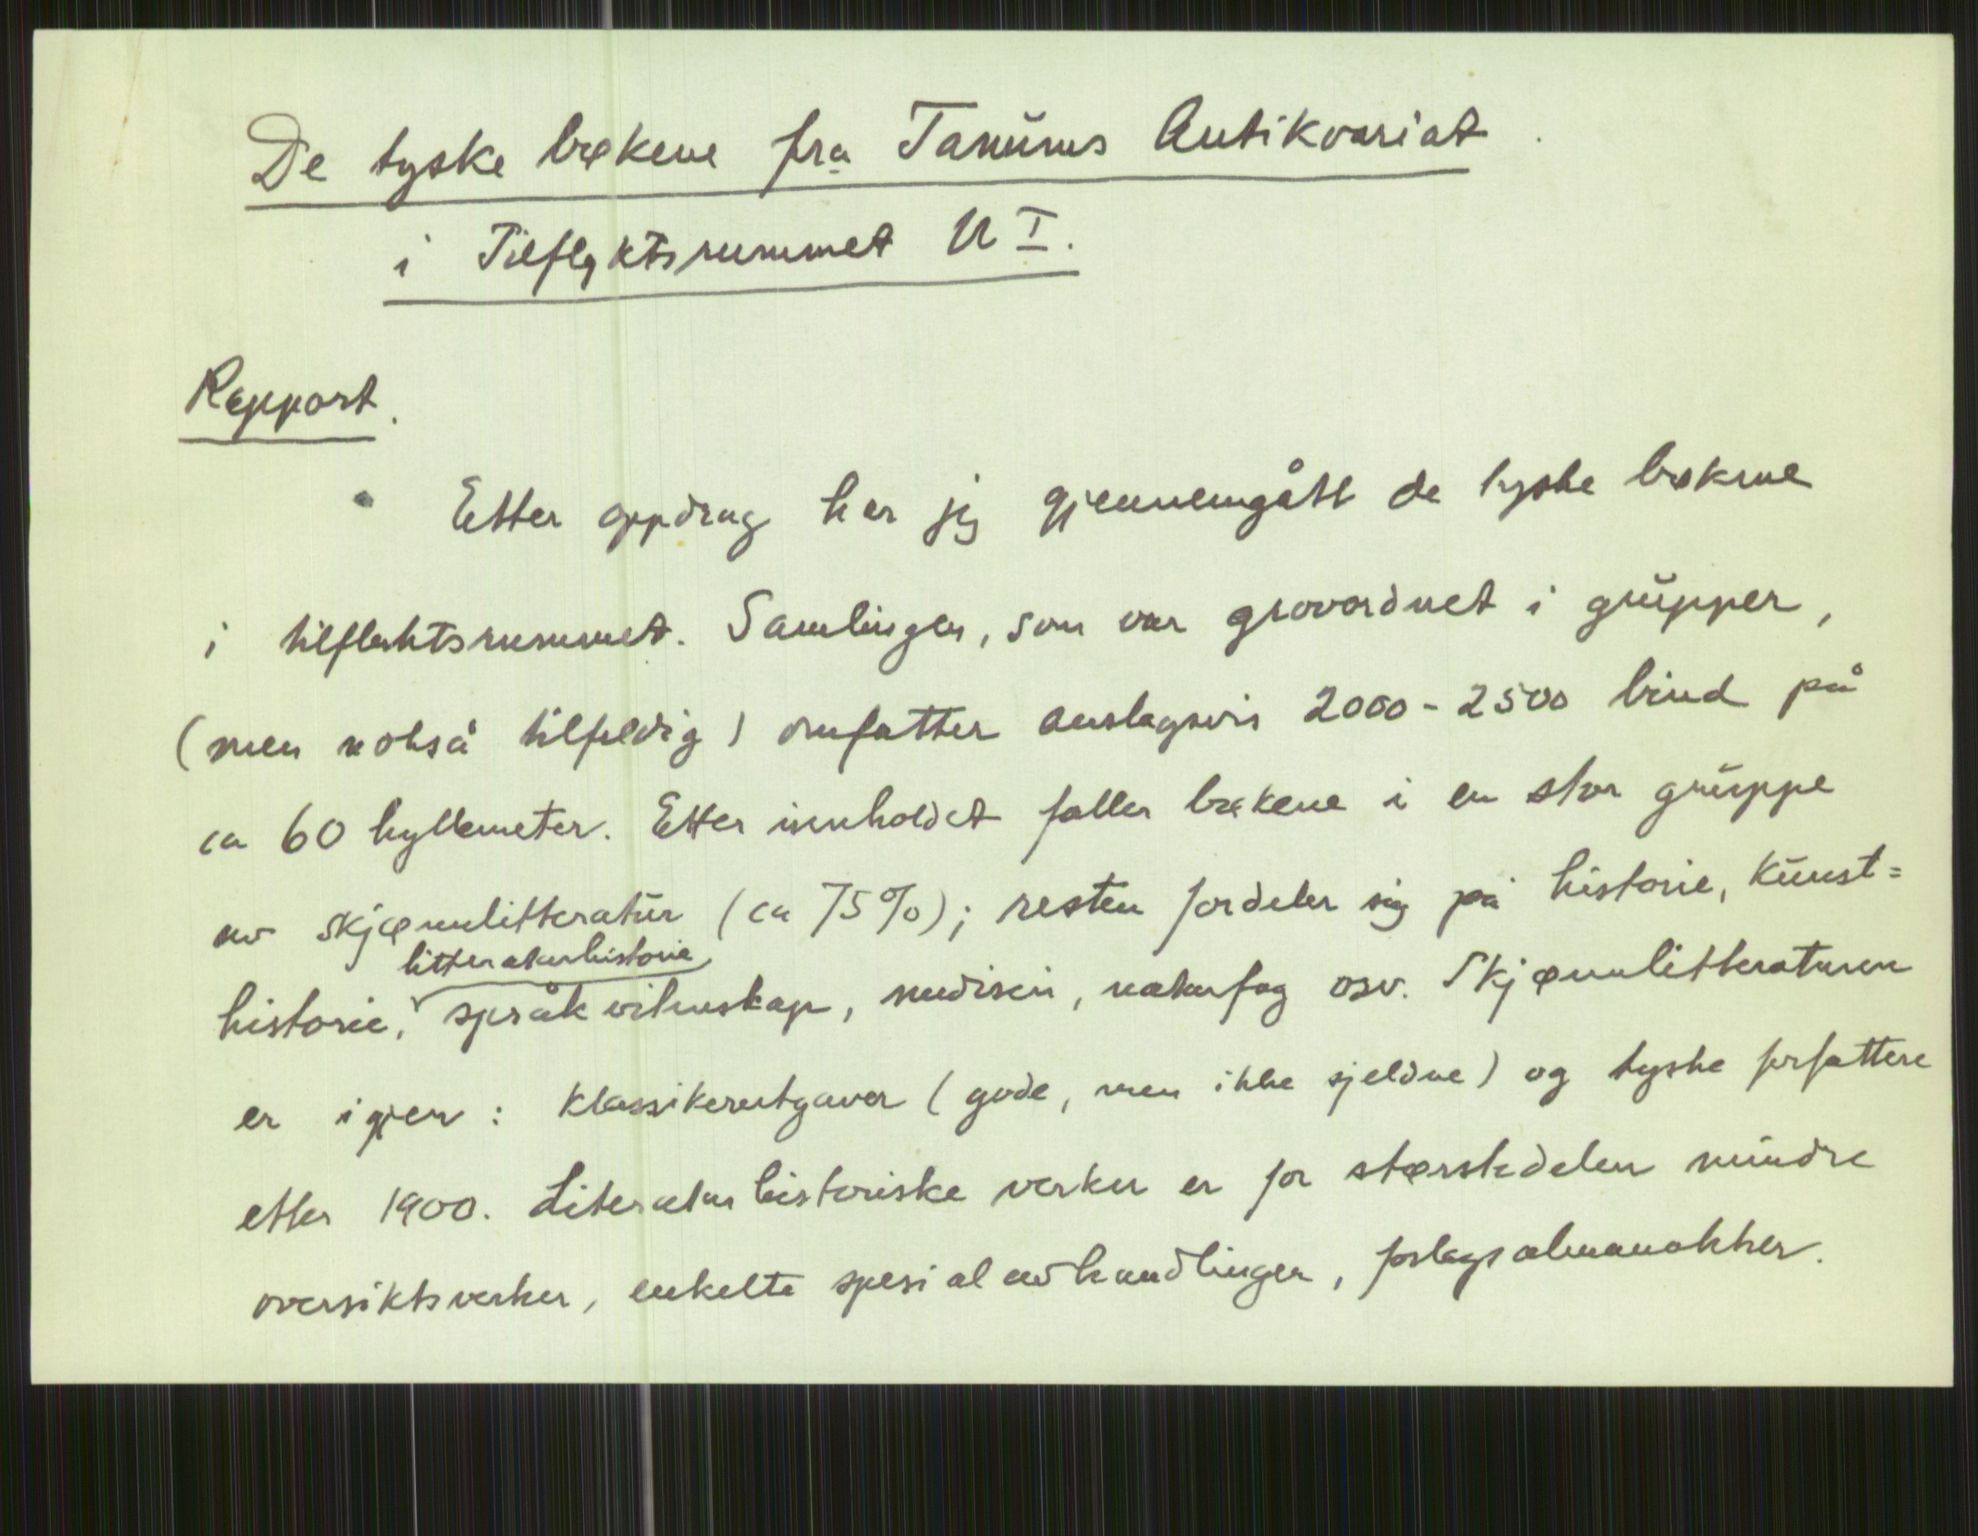 De tyske bøkene fra Tanums Antikvariat
i Tilflyktsrummet U I.
Rapport.
Etter oppdrag har jeg gjennemgått de tyske bøkene
i tilfluktsrummet. Samlingen, som var grovordnet i grupper,
(men nokså tilfeldig) omfatter anslagsvis 2000-2500 bind på
ca 60 hyllemeter. Etter innholdet faller bøkene i en stor gruppe
av skjønnlitteratur (ca 75%); resten fordeler sig på historie, kunst=
litteraturhistorie,
historie, språkvitenskap, medisin, naturfag osv. Skjønnlitteraturen
er igjen: klassikerutgaver (gode, men ikke sjeldne) og tyske forfattere
etter 1900. Literaturhistoriske verker er for størstedelen mindre
oversiktsverker, enkelte spesialavhandlinger, forlagsalmanakker.